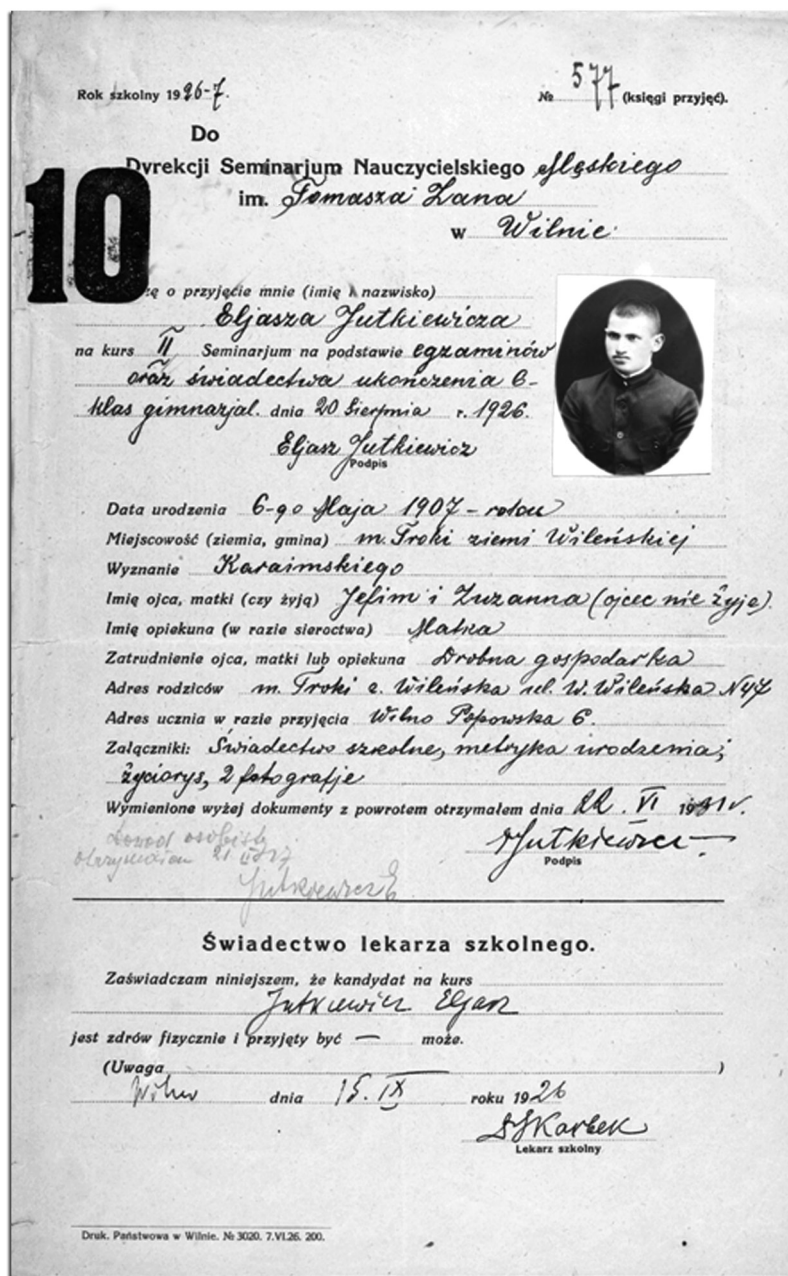 Rok szkolny 1926-7.
№ 577 (księgi przyjęć).
Do
Dyrekcji Seminarjum Nauczycielskiego Męskiego
im. Tomasza Zana
w Wilnie
10
o przyjęcie mnie (imię i nazwisko)
Eljasza Jutkiewicza
na kurs II Seminarjum na podstawie egzaminów
oraz świadectwa ukończenia 6-
klas gimnazjal. dnia 20 Sierpnia r. 1926.
Eljasz Jutkiewicz
Podpis
Data urodzenia 6-go Maja 1907 - roku
Miejscowość (ziemia, gmina) m. Troki ziemi Wileńskiej
Wyznanie Karaimskiego
Imię ojca, matki (czy żyją) Jefim i Zuzanna (ojciec nie żyje).
Imię opiekuna (w razie sieroctwa) Matka
Zatrudnienie ojca, matki lub opiekuna Drobna gospodarka
Adres rodziców m. Troki z. Wileńska ul. W. Wileńska N 47
Adres ucznia w razie przyjęcia Wilno Popowska 6.
Załączniki: Świadectwo szkolne, metryka urodzenia,
życiorys, 2 fotografje
Wymienione wyżej dokumenty z powrotem otrzymałem dnia 22. VI 1931 r.
Jutkiewicz
Podpis
Dowód osobisty
otrzymałem 21
Jutkiewicz E
Świadectwo lekarza szkolnego.
Zaświadczam niniejszem, że kandydat na kurs
Jutkiewicz Eljasz
jest zdrów fizycznie i przyjęty być — może.
(Uwaga )
Wilno dnia 15. IX roku 1926
Skarbek
Lekarz szkolny
Druk. Państwowa w Wilnie. № 3020. 7.VI.26. 200.